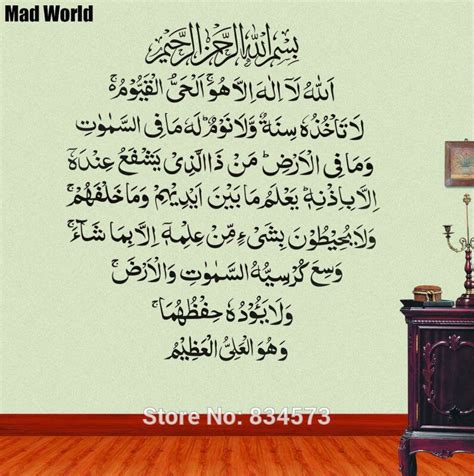 Mad World
بِسْمِ اللهِ الرَّحْمٰنِ الرَّحِيْمِ
اَللهُ لَآ اِلٰهَ اِلَّا هُوَۚ اَلْحَىُّ الْقَيُّوْمُ ەۚ
لَا تَاْخُذُهٗ سِنَةٌ وَّلَا نَوْمٌؕ لَهٗ مَا فِى السَّمٰوٰتِ
وَمَا فِى الْاَرْضِؕ مَنْ ذَا الَّذِىْ يَشْفَعُ عِنْدَهٗۤ
اِلَّا بِاِذْنِهٖؕ يَعْلَمُ مَا بَيْنَ اَيْدِيْهِمْ وَمَا خَلْفَهُمْۚ
وَلَا يُحِيْطُوْنَ بِشَىْءٍ مِّنْ عِلْمِهٖۤ اِلَّا بِمَا شَآءَۚ
وَسِعَ كُرْسِيُّهُ السَّمٰوٰتِ وَالْاَرْضَۚ
وَلَا يَـُٔوْدُهٗ حِفْظُهُمَاۚ
وَهُوَ الْعَلِىُّ الْعَظِيْمُ
Store No: 834573